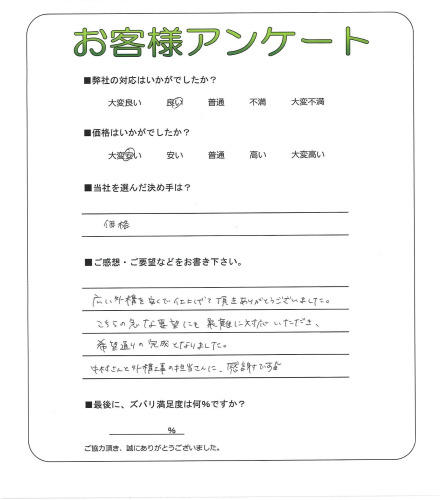 お客様アンケート
■弊社の対応はいかがでしたか?
大変良い 良い 普通 不満 大変不満
■価格はいかがでしたか?
大変安い 安い 普通 高い 大変高い
■当社を選んだ決め手は?
価格
■ご感想・ご要望などをお書き下さい。
広い外構を安く仕上げて頂きありがとうございました。
こちらの急な要望にも 対応いただき、
希望通りの完成となりました。
中村さんと外構工事の担当さんに、感謝です
■最後に、ズバリ満足度は何%ですか?
%
ご協力頂き、誠にありがとうございました。